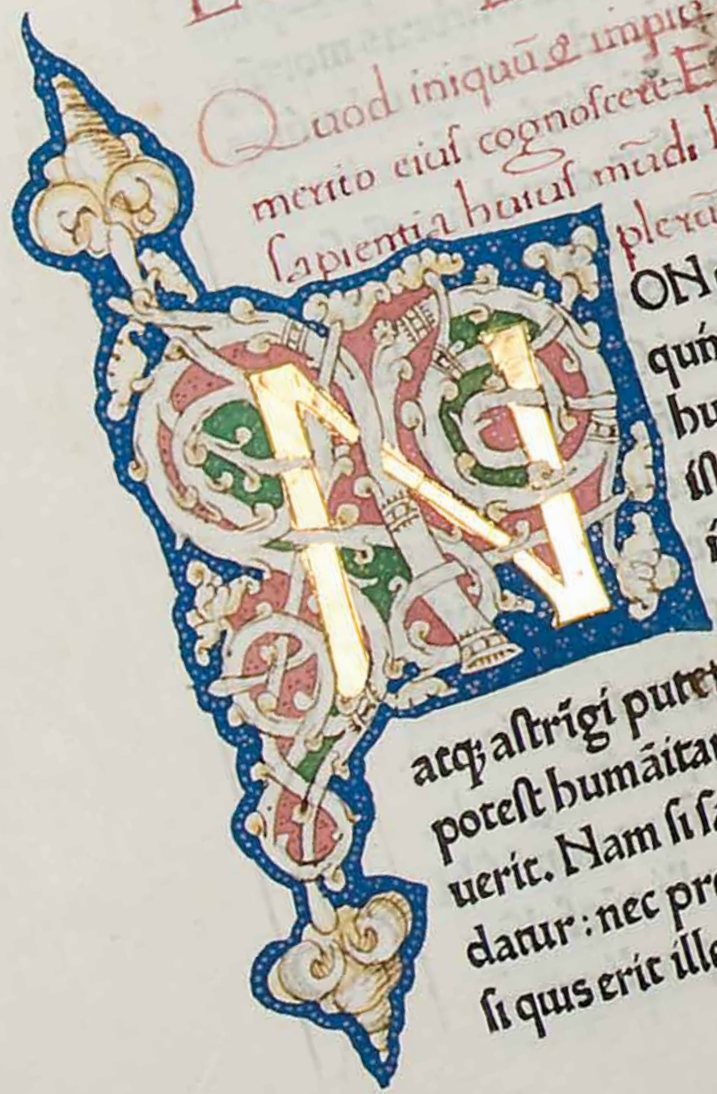 Quod iniquū & impiū
merito eius cognoscere E
sapientia huius mūdi h
N plerū
ON
quin
hu
in
atq; aſtrīgi putet
poteſt humāitar
uerit. Nam ſi ſa
datur: nec pre
ſi quis erit ille